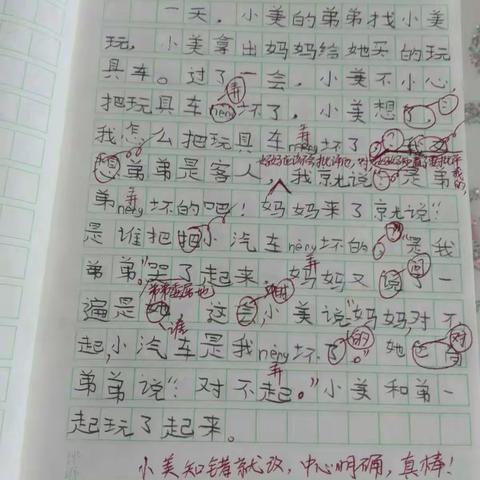 一天,小美的弟弟找小美
玩,小美拿出妈妈给她买的玩
具车。过了一会,小美不小心
把玩具车nèng坏了,小美想了
弄
我怎么把玩具车nèng坏了
弄
妈妈应该不会批评他,对
想弟弟是客人,我就说是弟
弟nèng坏的吧!妈妈来了就说:“
弄
是谁把把小汽车nèng坏的。”“是我
弟弟。”哭了起来,妈妈又说了一
弄
问
弟弟委屈地
遍是她,这会,小美说“妈妈,对不
谁
起,小汽车是我nèng坏了。”她
弄
的
对
弟弟说“:对不起。”小美和弟一
起玩了起来。
小美知错就改,中心明确,真棒!